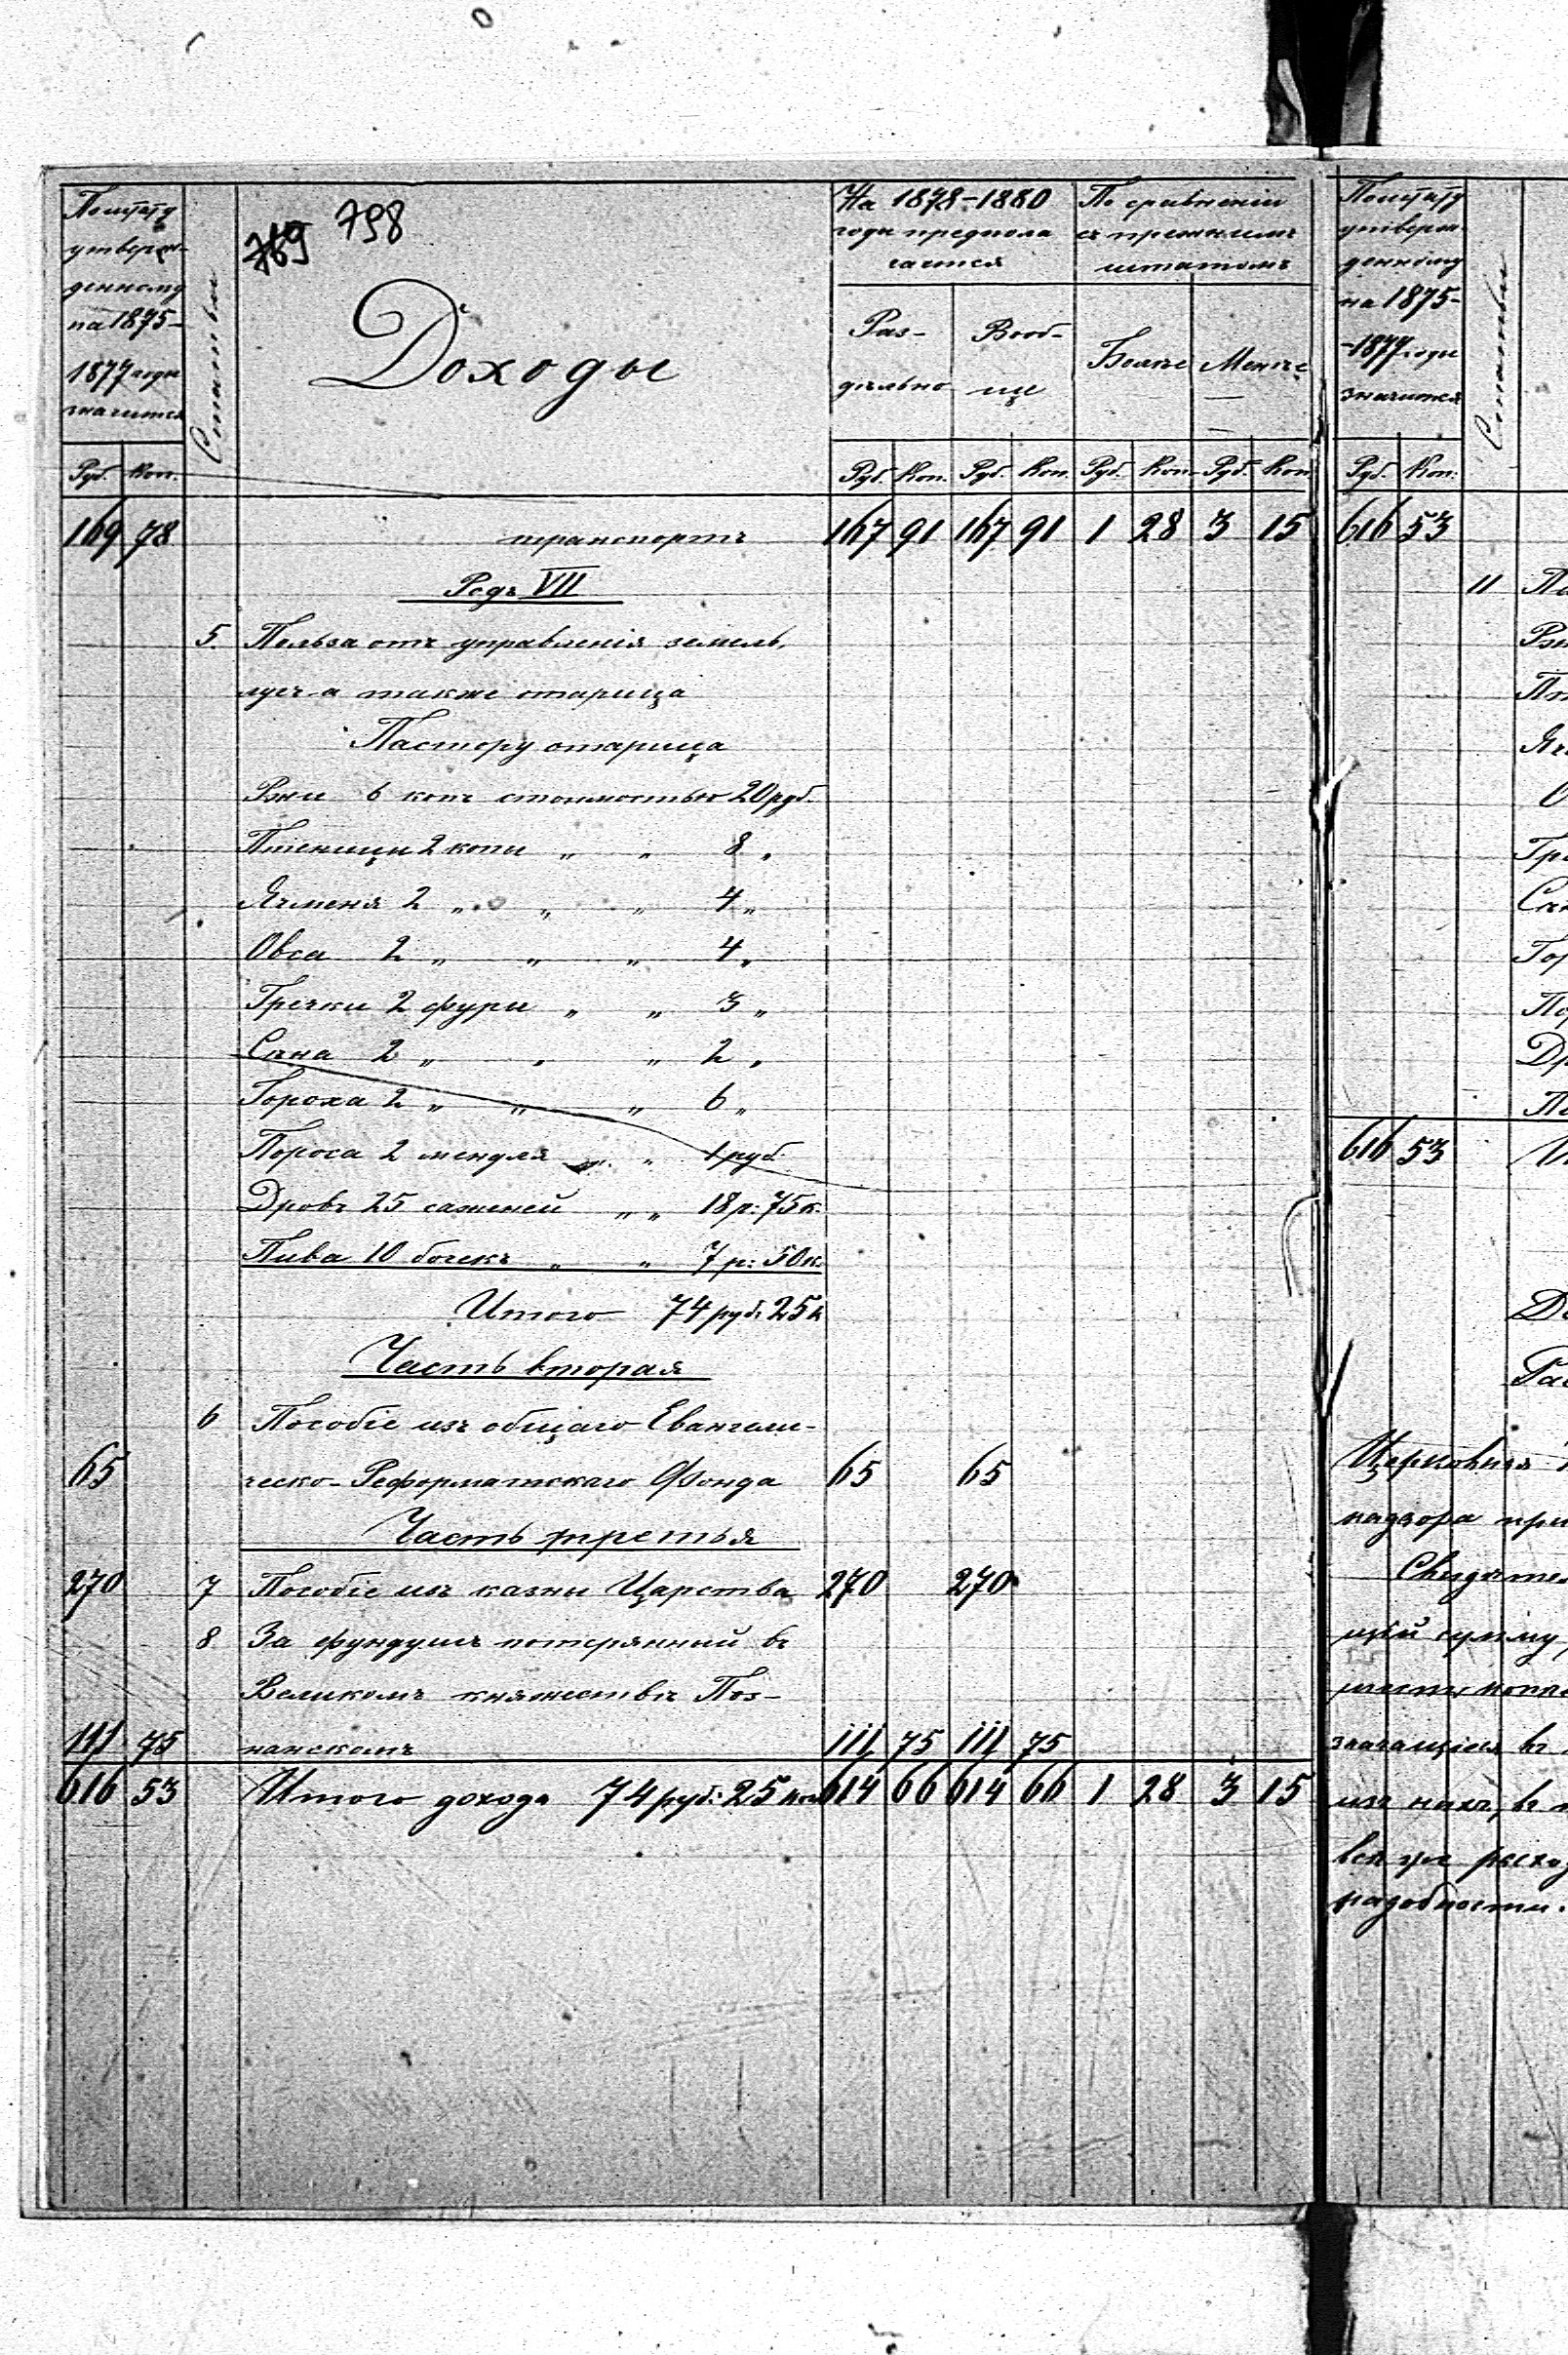 769 798
По штату утвержденному на 1875-1877 годы значится
Статьи
Доходы
На 1878-1880 годы предполагается
По сравнению съ прежнимъ штатомъ
Раздѣльно
Вообще
Болѣе
Менѣе
Руб. Коп. Руб. Коп. Руб. Коп. Руб. Коп. Руб. Коп.
169 78 транспортъ 167 91 167 91 1 28 3 15
Рядъ VII
5. Польза отъ управленія земель,
лугъ а также
Пастору
Ржи 6 копъ стоимостью 20 руб.
Пшеницы 2 копы „ „ 8 „
Ячменя 2 „ „ „ 4 „
Овса 2 „ „ „ 4 „
Гречки 2 фуры „ „ 3 „
Сѣна 2 „ „ „ 2 „
Гороха 2 „ „ „ 6 „
2 мендля „ „ 1 руб.
Дровъ 25 саженей „ „ 18 р: 75 к.
Пива 10 бочекъ „ „ 7 р: 50 к.
Итого 74 руб. 25 к
Часть вторая
6 Пособіе изъ общаго Евангели-
65 ческо-Реформатскаго Фонда 65 65
Часть третья
270 7 Пособіе изъ казны Царства 270 270
8 За фундушъ потерянный въ
Великомъ княжествѣ Поз-
111 75 нанскомъ 111 75 111 75
616 53 Итого дохода 74 руб: 25 коп 614 66 614 66 1 28 3 15
По штату утвержденному на 1875-1877 годы значится
Статьи
Руб. Коп:
616 53
11
616 53
Церковная
надзора при
щій сумму,
значащіеся въ
изъ нихъ, въ
надобности.